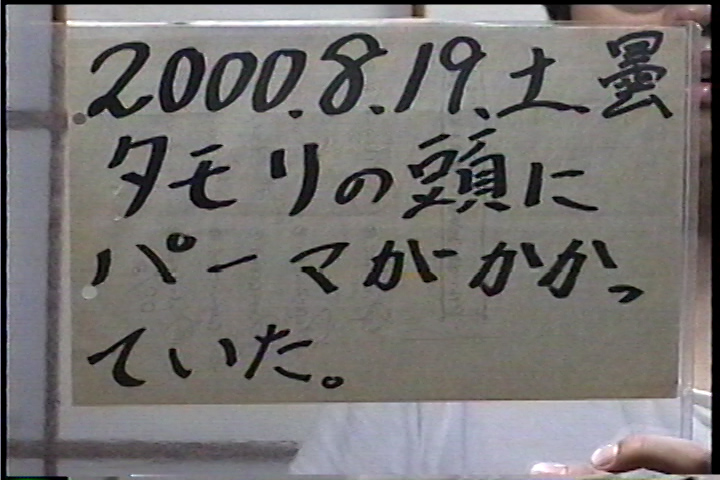 2000.8.19.土曇
タモリの頭に
パーマがかかっ
ていた。